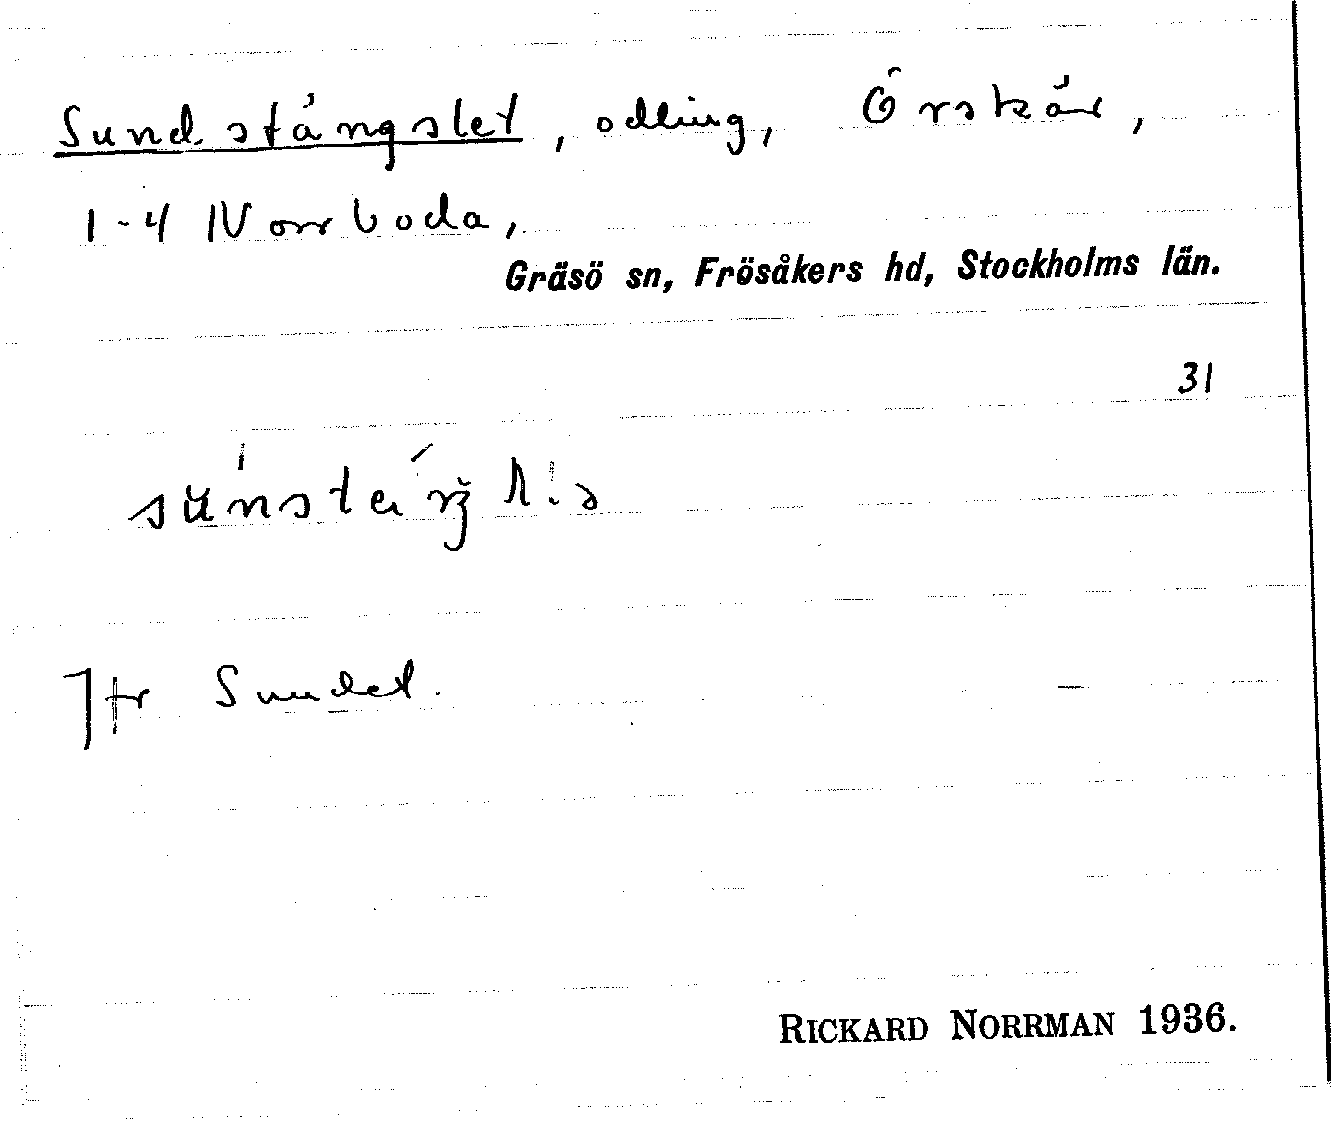 Sundstångslet, odling, Örskär,
1-4 Norrboda,
Gräsö sn, Frösåkers hd, Stockholms län.
31
Jfr Sundet.
RICKARD NORRMAN 1936.